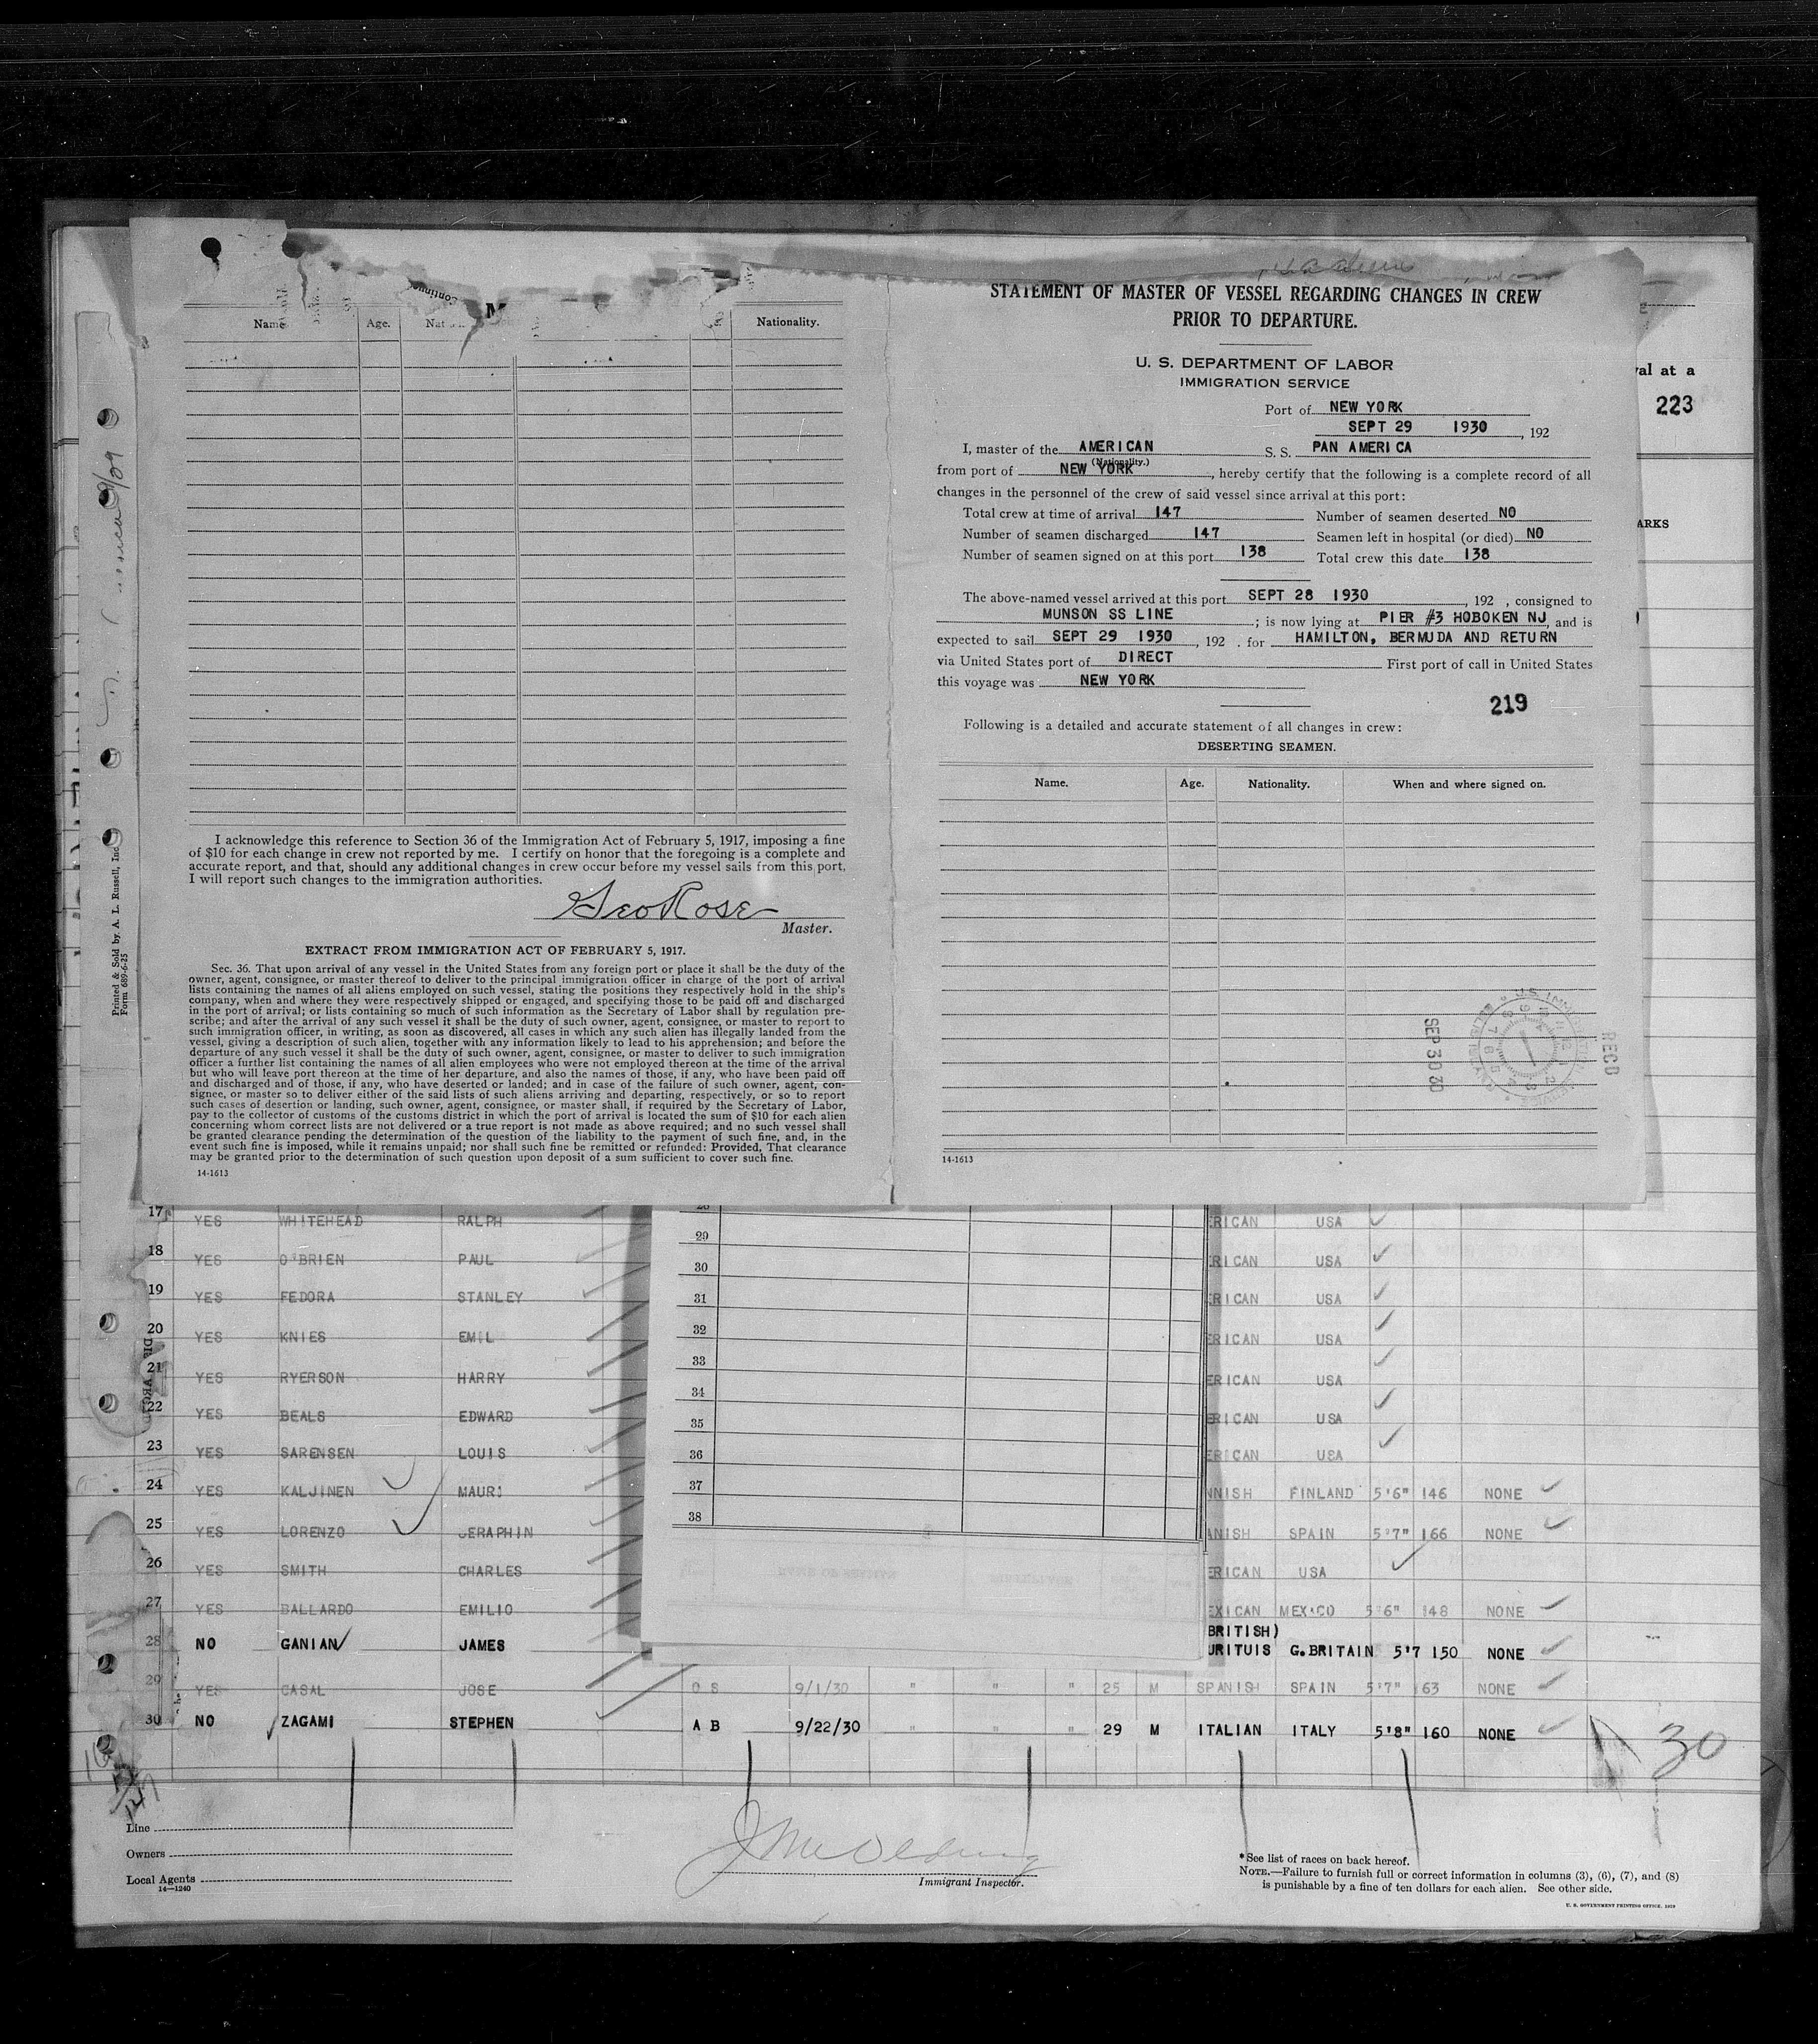 Name
Age.
Nationality.
I acknowledge this reference to Section 36 of the Immigration Act of February 5, 1917, imposing a fine
of $10 for each change in crew not reported by me. I certify on honor that the foregoing is a complete and
accurate report, and that, should any additional changes in crew occur before my vessel sails from this port,
I will report such changes to the immigration authorities.
Geo Rose
Master.
EXTRACT FROM IMMIGRATION ACT OF FEBRUARY 5, 1917.
Sec. 36. That upon arrival of any vessel in the United States from any foreign port or place it shall be the duty of the
owner, agent, consignee, or master thereof to deliver to the principal immigration officer in charge of the port of arrival
lists containing the names of all aliens employed on such vessel, stating the positions they respectively hold in the ship's
company, when and where they were respectively shipped or engaged, and specifying those to be paid off and discharged
in the port of arrival; or lists containing so much of such information as the Secretary of Labor shall by regulation pre-
scribe; and after the arrival of any such vessel it shall be the duty of such owner, agent, consignee, or master to report to
such immigration officer, in writing, as soon as discovered, all cases in which any such alien has illegally landed from the
vessel, giving a description of such alien, together with any information likely to lead to his apprehension; and before the
departure of any such vessel it shall be the duty of such owner, agent, consignee, or master to deliver to such immigration
officer a further list containing the names of all alien employees who were not employed thereon at the time of the arrival
but who will leave port thereon at the time of her departure, and also the names of those, if any, who have been paid off
and discharged and of those, if any, who have deserted or landed; and in case of the failure of such owner, agent, con-
signee, or master so to deliver either of the said lists of such aliens arriving and departing, respectively, or so to report
such cases of desertion or landing, such owner, agent, consignee, or master shall, if required by the Secretary of Labor,
pay to the collector of customs of the customs district in which the port of arrival is located the sum of $10 for each alien
concerning whom correct lists are not delivered or a true report is not made as above required; and no such vessel shall
be granted clearance pending the determination of the question of the liability to the payment of such fine, and, in the
event such fine is imposed, while it remains unpaid; nor shall such fine be remitted or refunded: Provided, That clearance
may be granted prior to the determination of such question upon deposit of a sum sufficient to cover such fine.
14-1613
STATEMENT OF MASTER OF VESSEL REGARDING CHANGES IN CREW
PRIOR TO DEPARTURE.
U. S. DEPARTMENT OF LABOR
IMMIGRATION SERVICE
Port of NEW YORK
SEPT 29 1930, 192
I, master of the AMERICAN S. S. PAN AMERICA
(Nationality.)
from port of NEW YORK, hereby certify that the following is a complete record of all
changes in the personnel of the crew of said vessel since arrival at this port:
Total crew at time of arrival 147 Number of seamen deserted NO
Number of seamen discharged 147 Seamen left in hospital (or died) NO
Number of seamen signed on at this port 138 Total crew this date 138
The above-named vessel arrived at this port SEPT 28 1930, 192 , consigned to
MUNSON SS LINE; is now lying at PIER #3 HOBOKEN NJ, and is
expected to sail SEPT 29 1930, 192 . for HAMILTON, BERMUDA AND RETURN
via United States port of DIRECT First port of call in United States
this voyage was NEW YORK
219
Following is a detailed and accurate statement of all changes in crew:
DESERTING SEAMEN.
Name. Age. Nationality. When and where signed on.
SEP 30 30
REC'D
14-1613
val at a
223
ARKS
Printed & Sold by A. L. Russell, Inc.
Form 689-6-25
17 YES WHITEHEAD RALPH ERICAN USA
18 YES O'BRIEN PAUL ERICAN USA
19 YES FEDORA STANLEY ERICAN USA
20 YES KNIES EMIL ERICAN USA
21 YES RYERSON HARRY ERICAN USA
22 YES BEALS EDWARD ERICAN USA
23 YES SARENSEN LOUIS ERICAN USA
24 YES KALJINEN MAURI NNISH FINLAND 5'6" 146 NONE
25 YES LORENZO SERAPHIN ANISH SPAIN 5'7" 166 NONE
26 YES SMITH CHARLES ERICAN USA
27 YES BALLARDO EMILIO EXICAN MEXICO 5'6" 148 NONE
BRITISH)
28 NO GANIAN JAMES URITUIS G.BRITAIN 5'7 150 NONE
29 YES CASAL JOSE O S 9/1/30 " " " 25 M SPANISH SPAIN 5'7" 163 NONE
30 NO ZAGAMI STEPHEN A B 9/22/30 " " " 29 M ITALIAN ITALY 5'8" 160 NONE
30
29
30
31
32
33
34
35
36
37
38
Line
Owners
Local Agents
14-1240
Immigrant Inspector.
*See list of races on back hereof.
NOTE.—Failure to furnish full or correct information in columns (3), (6), (7), and (8)
is punishable by a fine of ten dollars for each alien. See other side.
U. S. GOVERNMENT PRINTING OFFICE, 1929